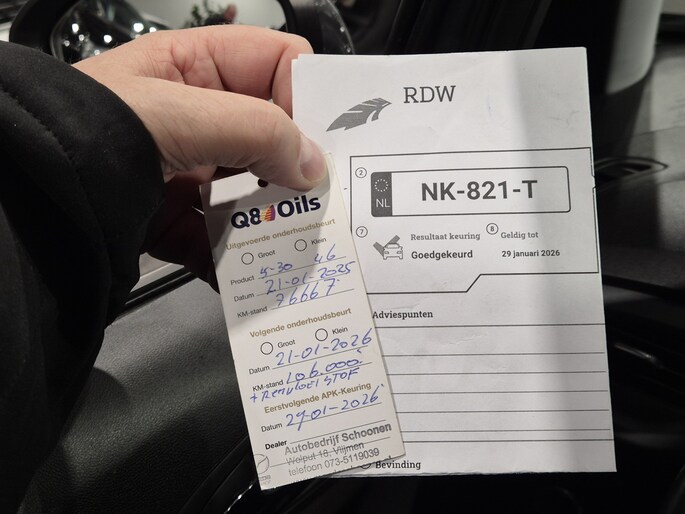 RDW
2
NL
NK-821-T
7
Resultaat keuring
Goedgekeurd
8
Geldig tot
29 januari 2026
Adviespunten
Bevinding
Q8 Oils
Uitgevoerde onderhoudsbeurt
Groot Klein
Product 5-30 46
Datum 21-01-2025
KM-stand 76667.
Volgende onderhoudsbeurt
Groot Klein
Datum 21-01-2026
KM-stand 106.000.
+ REMVLOEISTOF
Eerstvolgende APK-Keuring
Datum 29-01-2026
Dealer
Autobedrijf Schoonen
Wolput 18, Vlijmen
telefoon 073-5119039